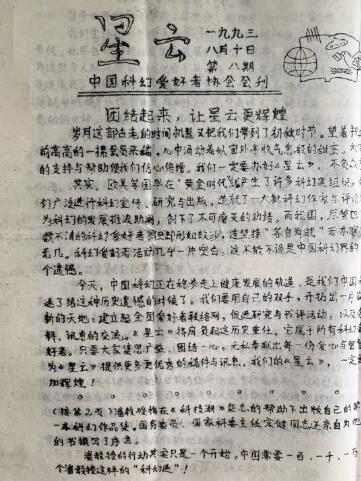 星云
一九九三
八月十日
第 八期
中国科幻爱好者协会会刊
团结起来，让星云更辉煌
岁月这部古老的时间机器又把我们带到了初秋时节。望着书
前高高的一摞会员来稿，心中涌动着
的支持与帮助使我们信心倍增。我们一定要办好《星云》，不负
其实，欧美等国早在“黄金时代”就产生了许多科幻迷组织。
们广泛进行科幻宣传、研究与出版，造就了一大批科幻作家与评论
为科幻的发展推波助澜，创下了不可磨灭的功绩。而我国，尽管也
数不清的科幻爱好者
无几。科幻爱好者活动几乎一片空白，这不能不说是中国科幻界的
个遗憾。
今天，中国科幻正在稳步走上健康发展的轨道，是我们中国
迷了结这神历史遗憾的时候了。我们要用自己的双手，开拓出一片
新的天地：建立起全国爱好者联络网，促进研究与书评活动，以及
料、讯息的交流。《星云》将肩负起历史重任。它属于所有科幻
好者。只要大家集思广益、团结一心，无私奉献出每一份爱心与
为《星云》提供更多更优秀的稿件与讯息，我们的《星云》，一定
加辉煌！
(接第2页) 潘教授将在《科技潮》杂志的帮助下出版自己的第
一本科幻作品集。国务委员、国家科委主任宋健同志还亲自为他
的书撰写了序言。
潘教授的行动其实只是一个开始，中国需要一百、一千、一万
个潘教授这样的“科幻迷”！